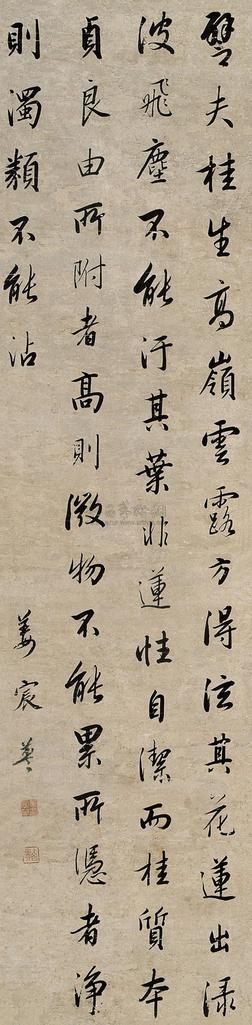 譬夫桂生高嶺雲露方得泫其花蓮出渌
波飛塵不能汙其葉非蓮性自潔而桂質本
貞良由所附者高則微物不能累所憑者淨
則濁類不能沾
姜宸英